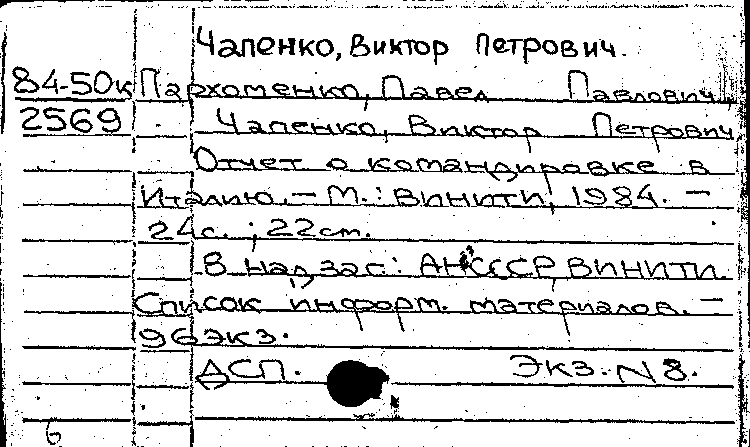 Чапенко, Виктор Петрович.
84-50к Пархоменко, Павел Павлович,
2569 Чапенко, Виктор Петрович
Отчет о командировке в
Италию. - М.: ВИНИТИ, 1984. -
24с. ; 22см.
В надзаг: АН СССР, ВИНИТИ.
Список информ. материалов. -
96 экз.
ДСП. Экз. N 8.
6